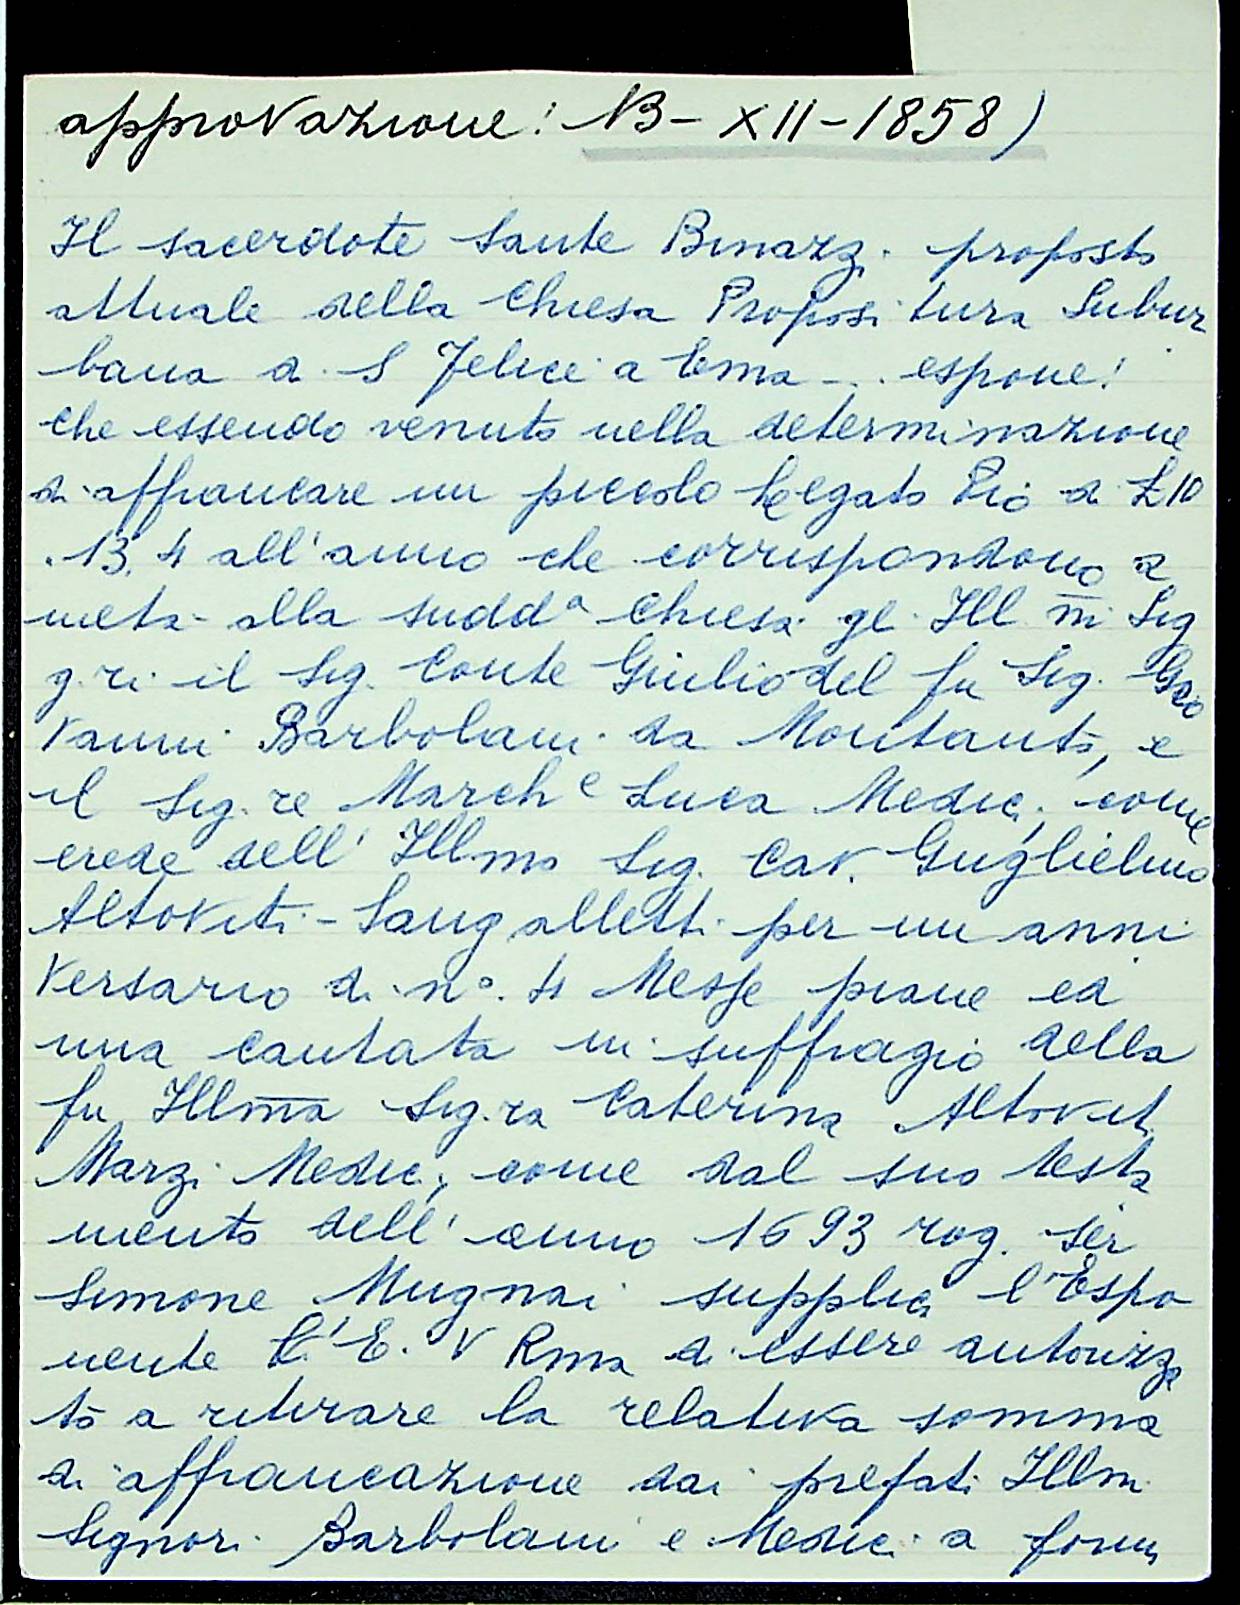 approvazione: 13-XII-1858)
Il sacerdote Sante Binazzi proposto
attuale della Chiesa Propositura Subur
bana di S Felice a Ema - .. espone:
che essendo venuto nella determinazione
di affrancare un piccolo Legato Pio di £ 10
.13.4 all'anno che corrispondono a
metà alla sudd.a Chiesa gl Ill mi Sig
g.ri il Sig. Conte Giulio del fu Sig. Gio
vanni Barbolani da Montauto, e
il Sig.re March e Luca Medici, come
erede dell' Illmo Sig. Cav. Guglielmo
Altoviti-Sangalletti per un anni
versario di n°. 4 Messe piane ed
una cantata in suffragio della
fu Illma Sig.ra Caterina Altoviti
Marzi Medici, come dal suo testa
mento dell' anno 1693 rog. ser
Simone Mugnai supplica l'Espo
nente l'E. V Rma di essere autorizza
to a ritirare la relativa somma
di affrancazione dai prefati Illmi
Signori Barbolani e Medici a